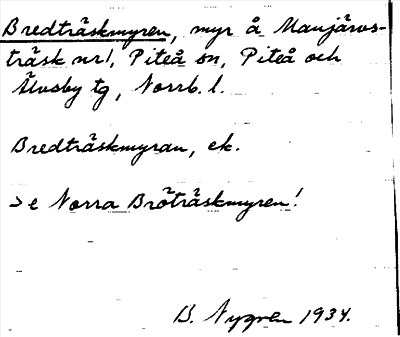 Bredträskmyren, myr å Manjärvs-
träsk nr 1, Piteå sn, Piteå och
Älvsby tg, Norrb. l.
Bredträskmyran, ek.
>e Norra Bröträskmyren!
B. Nygren 1934.